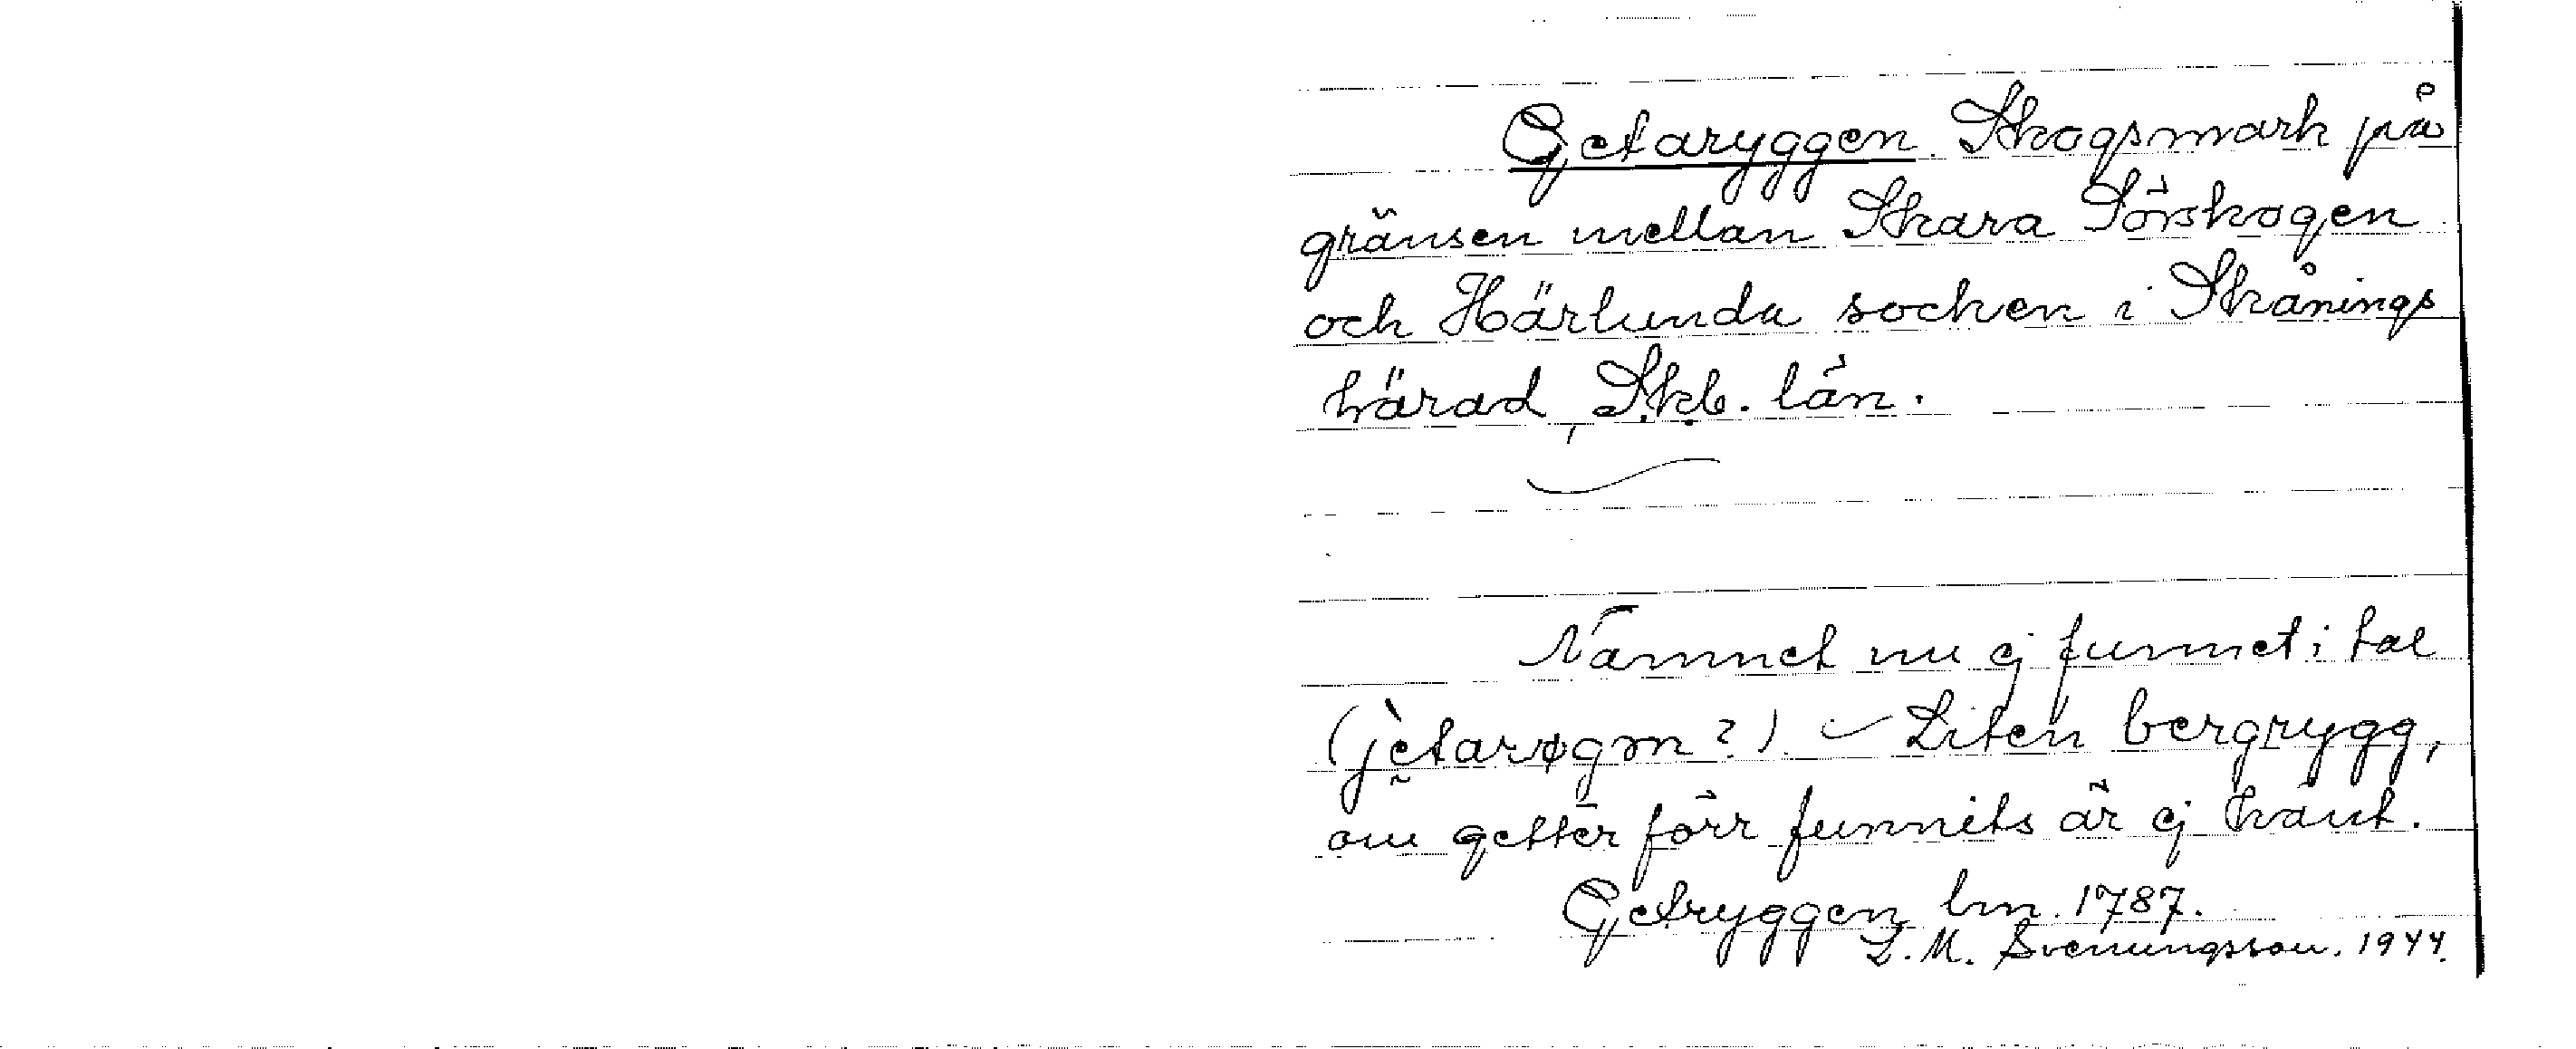 Getaryggen. Skogsmark på
gränsen mellan Skara Sörskogen
och Härlunda socken i Skånings
härad, Skb. län.
Namnet nu ej funnet i tal
(jètarøgm?). Liten bergrygg,
om getter förr funnits är ej känt.
Getryggen lm. 1787.
L. M. Svenungsson. 1944.